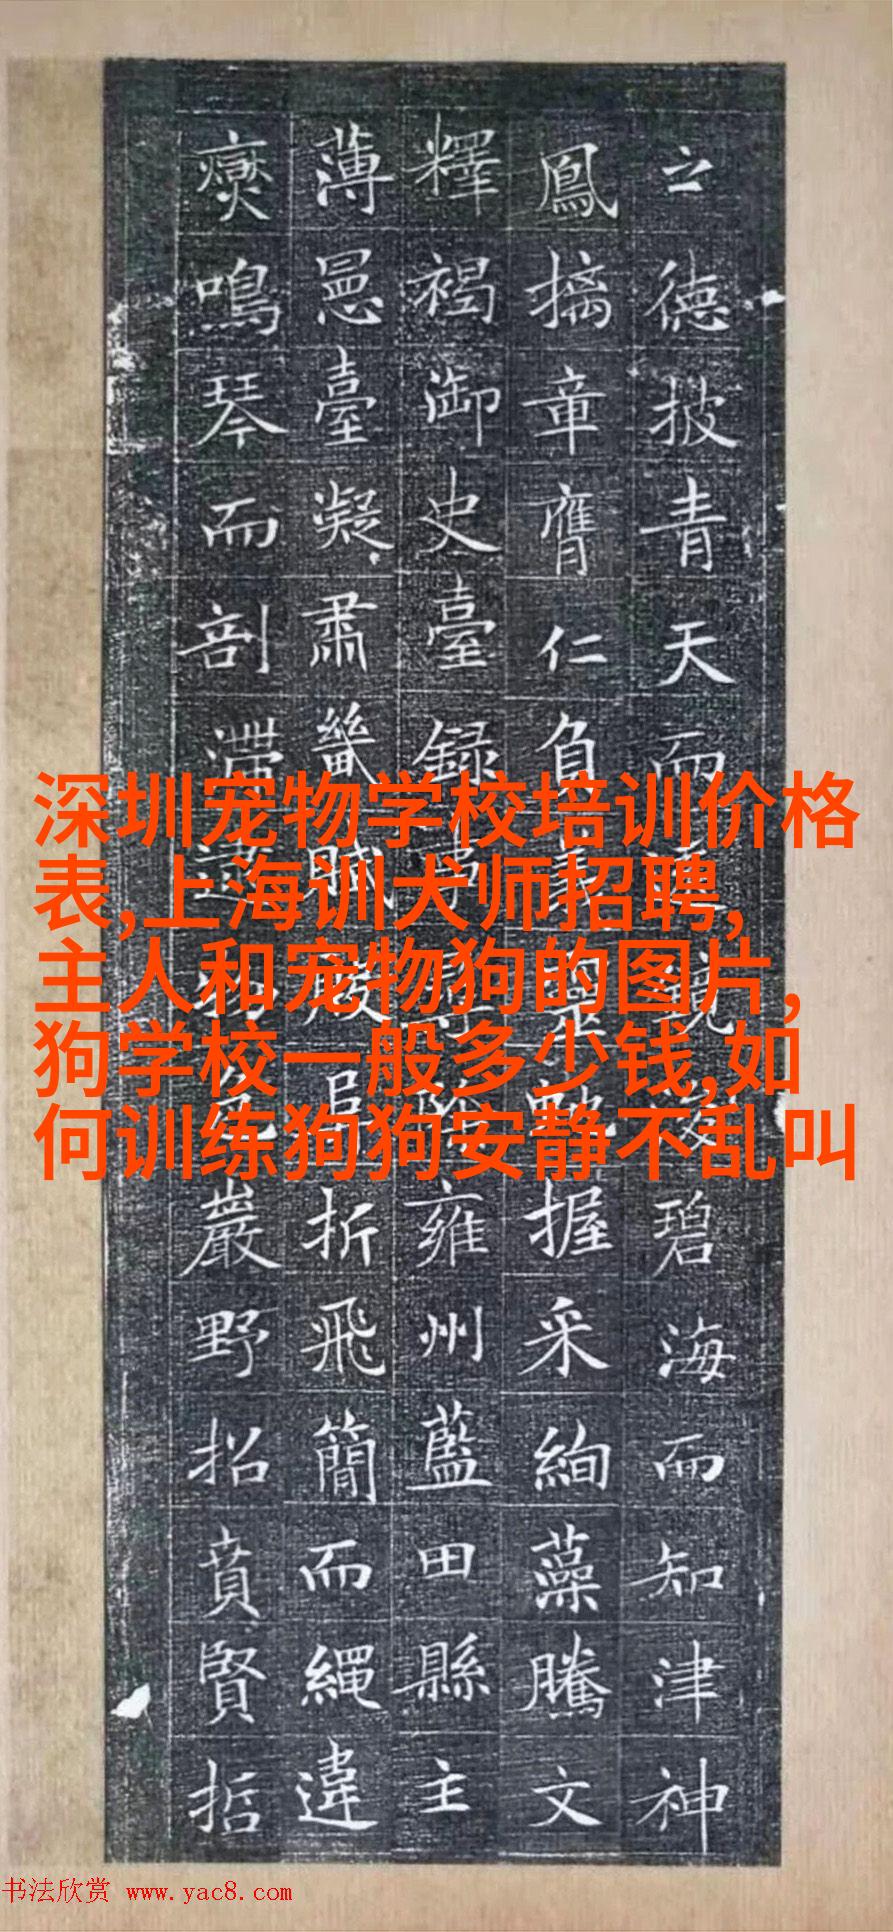 之德披青天而碧海而知津神
鳳摛章膺仁負握采絢藻騰文
釋褐御史臺録雍州藍田縣主
薄臺凝肅折飛簡而繩違
鳴琴而剖滯巖野招賁賢哲
深圳宠物学校培训价格
表,上海训犬师招聘,
主人和宠物狗的图片,
狗学校一般多少钱,如
何训练狗狗安静不乱叫
书法欣赏 www.yac8.com